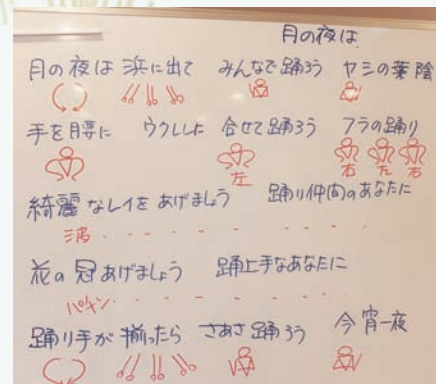 月の夜は
月の夜は 浜に出て みんなで踊ろう ヤシの葉陰
手を腰に ウクレレに 合せて踊ろう フラの踊り
左 右 左 右
綺麗なレイを あげましょう 踊り仲間のあなたに
花の冠あげましょう 踊上手なあなたに
踊り手が 揃ったら さあさ踊ろう 今宵一夜